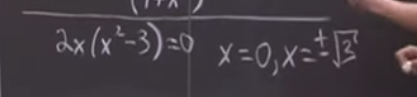 2x(x²-3)=0 x=0, x=±√3